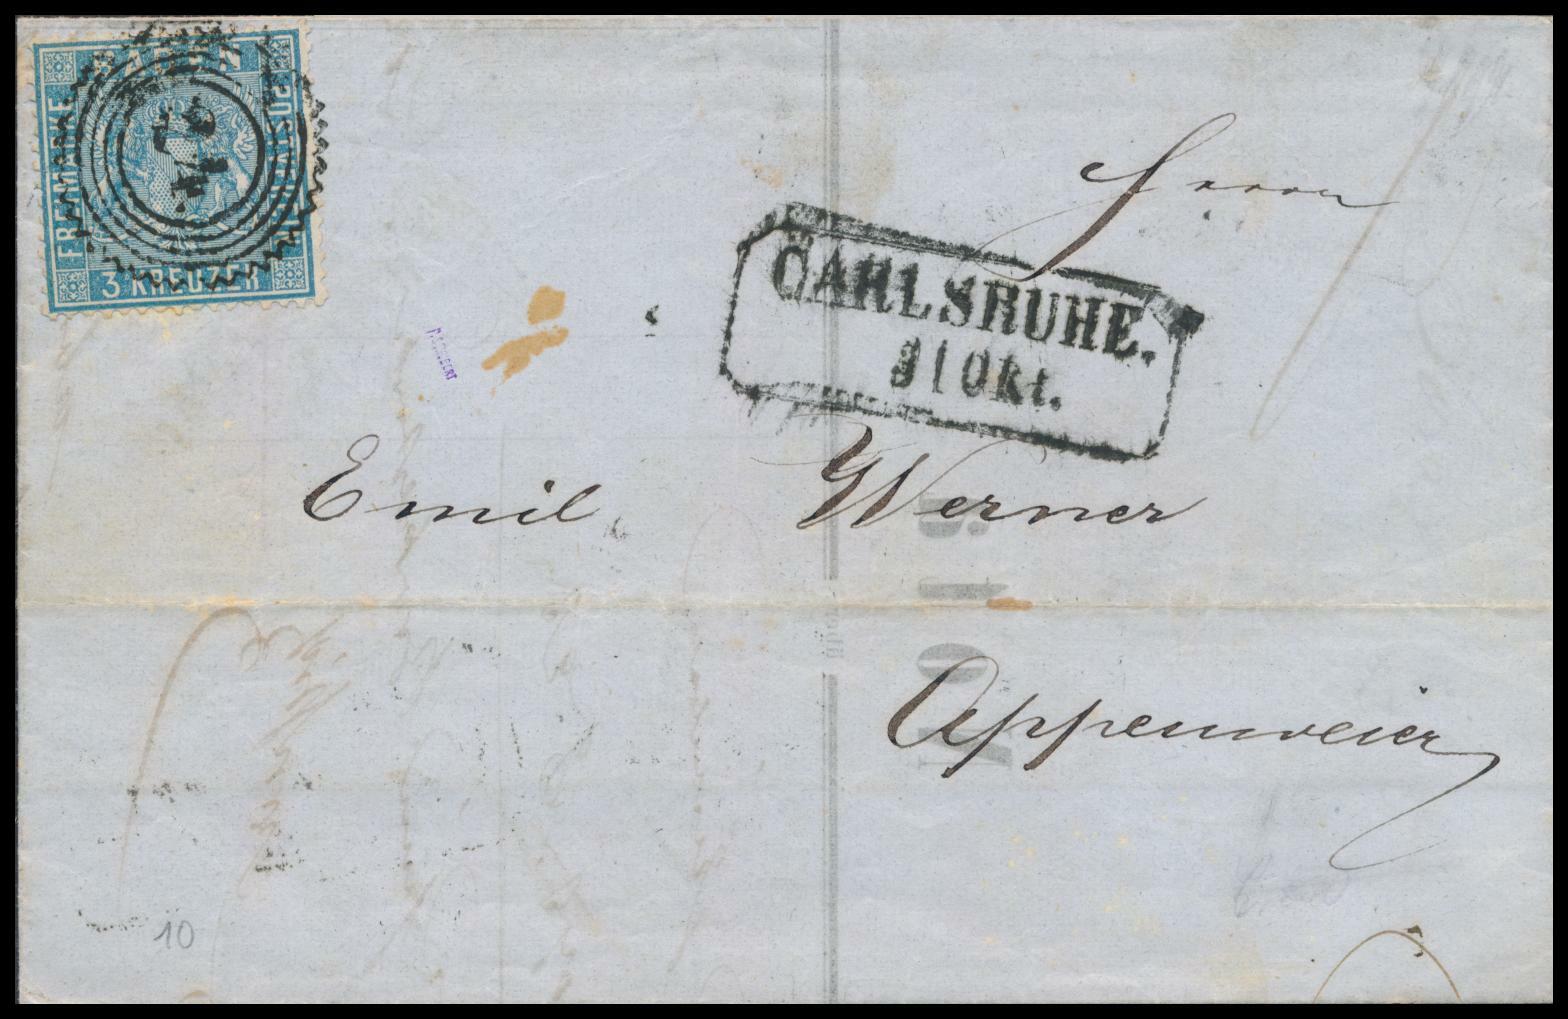 BADEN
FREIMARKE
3 KREUZER
24
Herrn
CARLSRUHE.
31 Okt.
Emil Werner
Appenweier
10